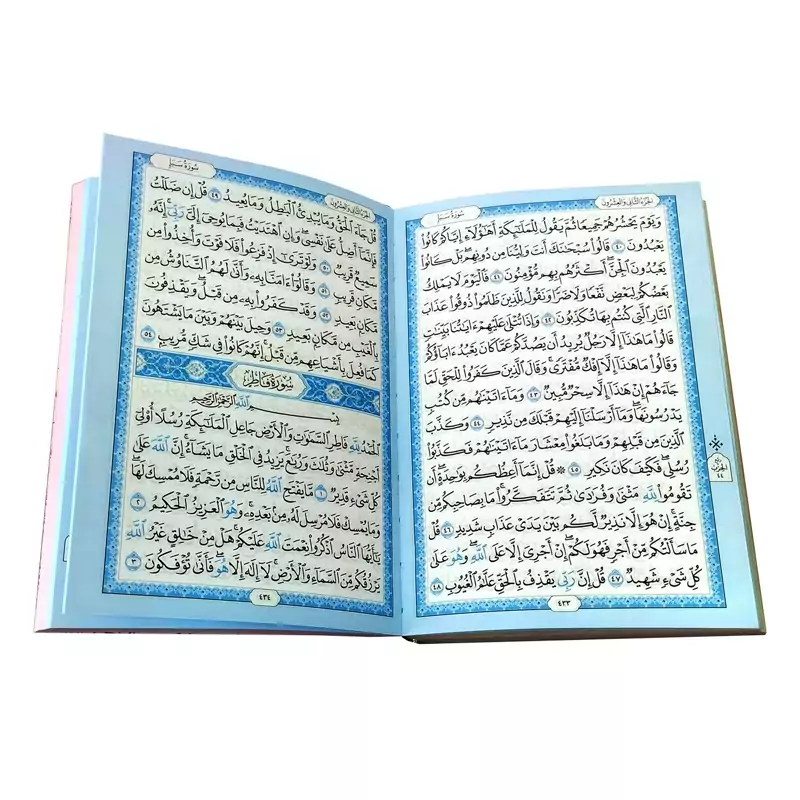 الجُزْءُ الثَّانِي وَالعِشْرُونَ سُورَةُ سَبَإٍ
وَيَوْمَ يَحْشُرُهُمْ جَمِيعًا ثُمَّ يَقُولُ لِلْمَلَٰٓئِكَةِ أَهَٰٓؤُلَآءِ إِيَّاكُمْ كَانُوا۟
يَعْبُدُونَ ٤٠ قَالُوا۟ سُبْحَٰنَكَ أَنتَ وَلِيُّنَا مِن دُونِهِم ۖ بَلْ كَانُوا۟
يَعْبُدُونَ ٱلْجِنَّ ۖ أَكْثَرُهُم بِهِم مُّؤْمِنُونَ ٤١ فَٱلْيَوْمَ لَا يَمْلِكُ
بَعْضُكُمْ لِبَعْضٍ نَّفْعًا وَلَا ضَرًّا وَنَقُولُ لِلَّذِينَ ظَلَمُوا۟ ذُوقُوا۟ عَذَابَ
ٱلنَّارِ ٱلَّتِى كُنتُم بِهَا تُكَذِّبُونَ ٤٢ وَإِذَا تُتْلَىٰ عَلَيْهِمْ ءَايَٰتُنَا بَيِّنَٰتٍ
قَالُوا۟ مَا هَٰذَآ إِلَّا رَجُلٌ يُرِيدُ أَن يَصُدَّكُمْ عَمَّا كَانَ يَعْبُدُ ءَابَآؤُكُمْ
وَقَالُوا۟ مَا هَٰذَآ إِلَّآ إِفْكٌ مُّفْتَرًى ۚ وَقَالَ ٱلَّذِينَ كَفَرُوا۟ لِلْحَقِّ لَمَّا
جَآءَهُمْ إِنْ هَٰذَآ إِلَّا سِحْرٌ مُّبِينٌ ٤٣ وَمَآ ءَاتَيْنَٰهُم مِّن كُتُبٍ
يَدْرُسُونَهَا ۖ وَمَآ أَرْسَلْنَآ إِلَيْهِمْ قَبْلَكَ مِن نَّذِيرٍ ٤٤ وَكَذَّبَ
ٱلَّذِينَ مِن قَبْلِهِمْ وَمَا بَلَغُوا۟ مِعْشَارَ مَآ ءَاتَيْنَٰهُمْ فَكَذَّبُوا۟
رُسُلِى ۖ فَكَيْفَ كَانَ نَكِيرِ ٤٥ ۞ قُلْ إِنَّمَآ أَعِظُكُم بِوَٰحِدَةٍ ۖ أَن
تَقُومُوا۟ لِلَّهِ مَثْنَىٰ وَفُرَٰدَىٰ ثُمَّ تَتَفَكَّرُوا۟ ۚ مَا بِصَاحِبِكُم مِّن
جِنَّةٍ ۚ إِنْ هُوَ إِلَّا نَذِيرٌ لَّكُم بَيْنَ يَدَىْ عَذَابٍ شَدِيدٍ ٤٦ قُلْ
مَا سَأَلْتُكُم مِّنْ أَجْرٍ فَهُوَ لَكُمْ ۖ إِنْ أَجْرِىَ إِلَّا عَلَى ٱللَّهِ ۖ وَهُوَ عَلَىٰ
كُلِّ شَىْءٍ شَهِيدٌ ٤٧ قُلْ إِنَّ رَبِّى يَقْذِفُ بِٱلْحَقِّ عَلَّٰمُ ٱلْغُيُوبِ ٤٨
٤٣٣
الجُزْءُ الثَّانِي وَالعِشْرُونَ سُورَةُ سَبَإٍ
قُلْ جَآءَ ٱلْحَقُّ وَمَا يُبْدِئُ ٱلْبَٰطِلُ وَمَا يُعِيدُ ٤٩ قُلْ إِن ضَلَلْتُ
فَإِنَّمَآ أَضِلُّ عَلَىٰ نَفْسِى ۖ وَإِنِ ٱهْتَدَيْتُ فَبِمَا يُوحِىٓ إِلَىَّ رَبِّىٓ ۚ إِنَّهُۥ
سَمِيعٌ قَرِيبٌ ٥٠ وَلَوْ تَرَىٰٓ إِذْ فَزِعُوا۟ فَلَا فَوْتَ وَأُخِذُوا۟ مِن
مَّكَانٍ قَرِيبٍ ٥١ وَقَالُوٓا۟ ءَامَنَّا بِهِۦ وَأَنَّىٰ لَهُمُ ٱلتَّنَاوُشُ مِن
مَّكَانٍۭ بَعِيدٍ ٥٢ وَقَدْ كَفَرُوا۟ بِهِۦ مِن قَبْلُ ۖ وَيَقْذِفُونَ
بِٱلْغَيْبِ مِن مَّكَانٍۭ بَعِيدٍ ٥٣ وَحِيلَ بَيْنَهُمْ وَبَيْنَ مَا يَشْتَهُونَ
كَمَا فُعِلَ بِأَشْيَاعِهِم مِّن قَبْلُ ۚ إِنَّهُمْ كَانُوا۟ فِى شَكٍّ مُّرِيبٍۭ ٥٤
سُورَةُ فَاطِرٍ
بِسْمِ ٱللَّهِ ٱلرَّحْمَٰنِ ٱلرَّحِيمِ
ٱلْحَمْدُ لِلَّهِ فَاطِرِ ٱلسَّمَٰوَٰتِ وَٱلْأَرْضِ جَاعِلِ ٱلْمَلَٰٓئِكَةِ رُسُلًا أُو۟لِىٓ
أَجْنِحَةٍ مَّثْنَىٰ وَثُلَٰثَ وَرُبَٰعَ ۚ يَزِيدُ فِى ٱلْخَلْقِ مَا يَشَآءُ ۚ إِنَّ ٱللَّهَ عَلَىٰ
كُلِّ شَىْءٍ قَدِيرٌ ١ مَّا يَفْتَحِ ٱللَّهُ لِلنَّاسِ مِن رَّحْمَةٍ فَلَا مُمْسِكَ لَهَا ۖ
وَمَا يُمْسِكْ فَلَا مُرْسِلَ لَهُۥ مِنۢ بَعْدِهِۦ ۚ وَهُوَ ٱلْعَزِيزُ ٱلْحَكِيمُ ٢
يَٰٓأَيُّهَا ٱلنَّاسُ ٱذْكُرُوا۟ نِعْمَتَ ٱللَّهِ عَلَيْكُمْ ۚ هَلْ مِنْ خَٰلِقٍ غَيْرُ ٱللَّهِ
يَرْزُقُكُم مِّنَ ٱلسَّمَآءِ وَٱلْأَرْضِ ۚ لَآ إِلَٰهَ إِلَّا هُوَ ۖ فَأَنَّىٰ تُؤْفَكُونَ ٣
٤٣٤